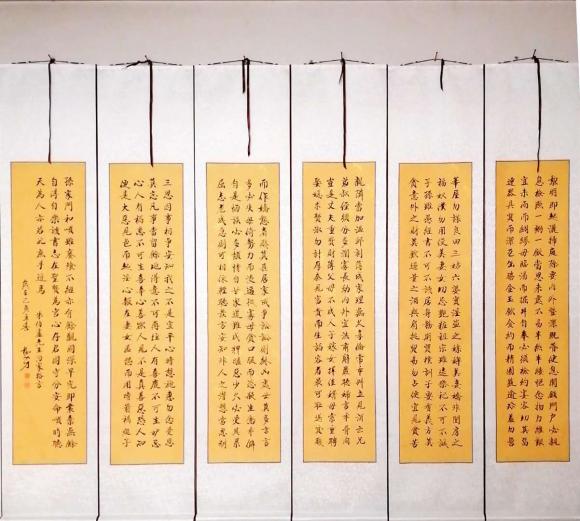 黎明即起灑掃庭除要內外整潔既昏便息關鎖門戶必親
自檢點一粥一飯當思來處不易半絲半縷恒念物力維艱
宜未雨而綢繆毋臨渴而掘井自奉必須儉約宴客切勿留
連器具質而潔瓦缶勝金玉飲食約而精園蔬逾珍羞勿營
華屋勿謀良田三姑六婆實淫盜之媒婢美妾嬌非閨房之
福奴僕勿用俊美妻妾切忌艷妝祖宗雖遠祭祀不可不誠
子孫雖愚經書不可不讀居身務期質樸訓子要有義方莫
貪意外之財莫飲過量之酒與肩挑貿易勿占便宜見貧苦
親鄰當加溫卹刻薄成家理無久享倫常乖舛立見消亡兄
弟叔侄須分多潤寡長幼內外宜法肅辭嚴聽婦言乖骨肉
豈是丈夫重貲財薄父母不成人子嫁女擇佳婿毋索重聘
娶媳求賢淑勿計厚奩見富貴而生諂容者最可恥遇貧窮
而作驕態者賤莫甚居家戒爭訟訟則終凶處世戒多言言
多必失毋恃勢力而凌逼孤寡毋貪口腹而恣殺生禽乖僻
自是悔誤必多頹惰自甘家道難成狎暱惡少久必受其累
屈志老成急則可相依輕聽發言安知非人之譖愬當忍耐
三思因事相爭安知我之不是宜平心暗想施惠勿念受恩
莫忘凡事當留餘地得意不宜再往人有喜慶不可生妒忌
心人有禍患不可生喜幸心善欲人見不是真善惡恐人知
便是大惡見色而起淫心報在妻女匿怨而用暗箭禍延子
孫家門和順雖饔飧不繼亦有餘歡國課早完即囊橐無餘
自得至樂讀書志在聖賢為官心存君國守分安命順時聽
天為人若此庶乎近焉
朱伯廬先生治家格言